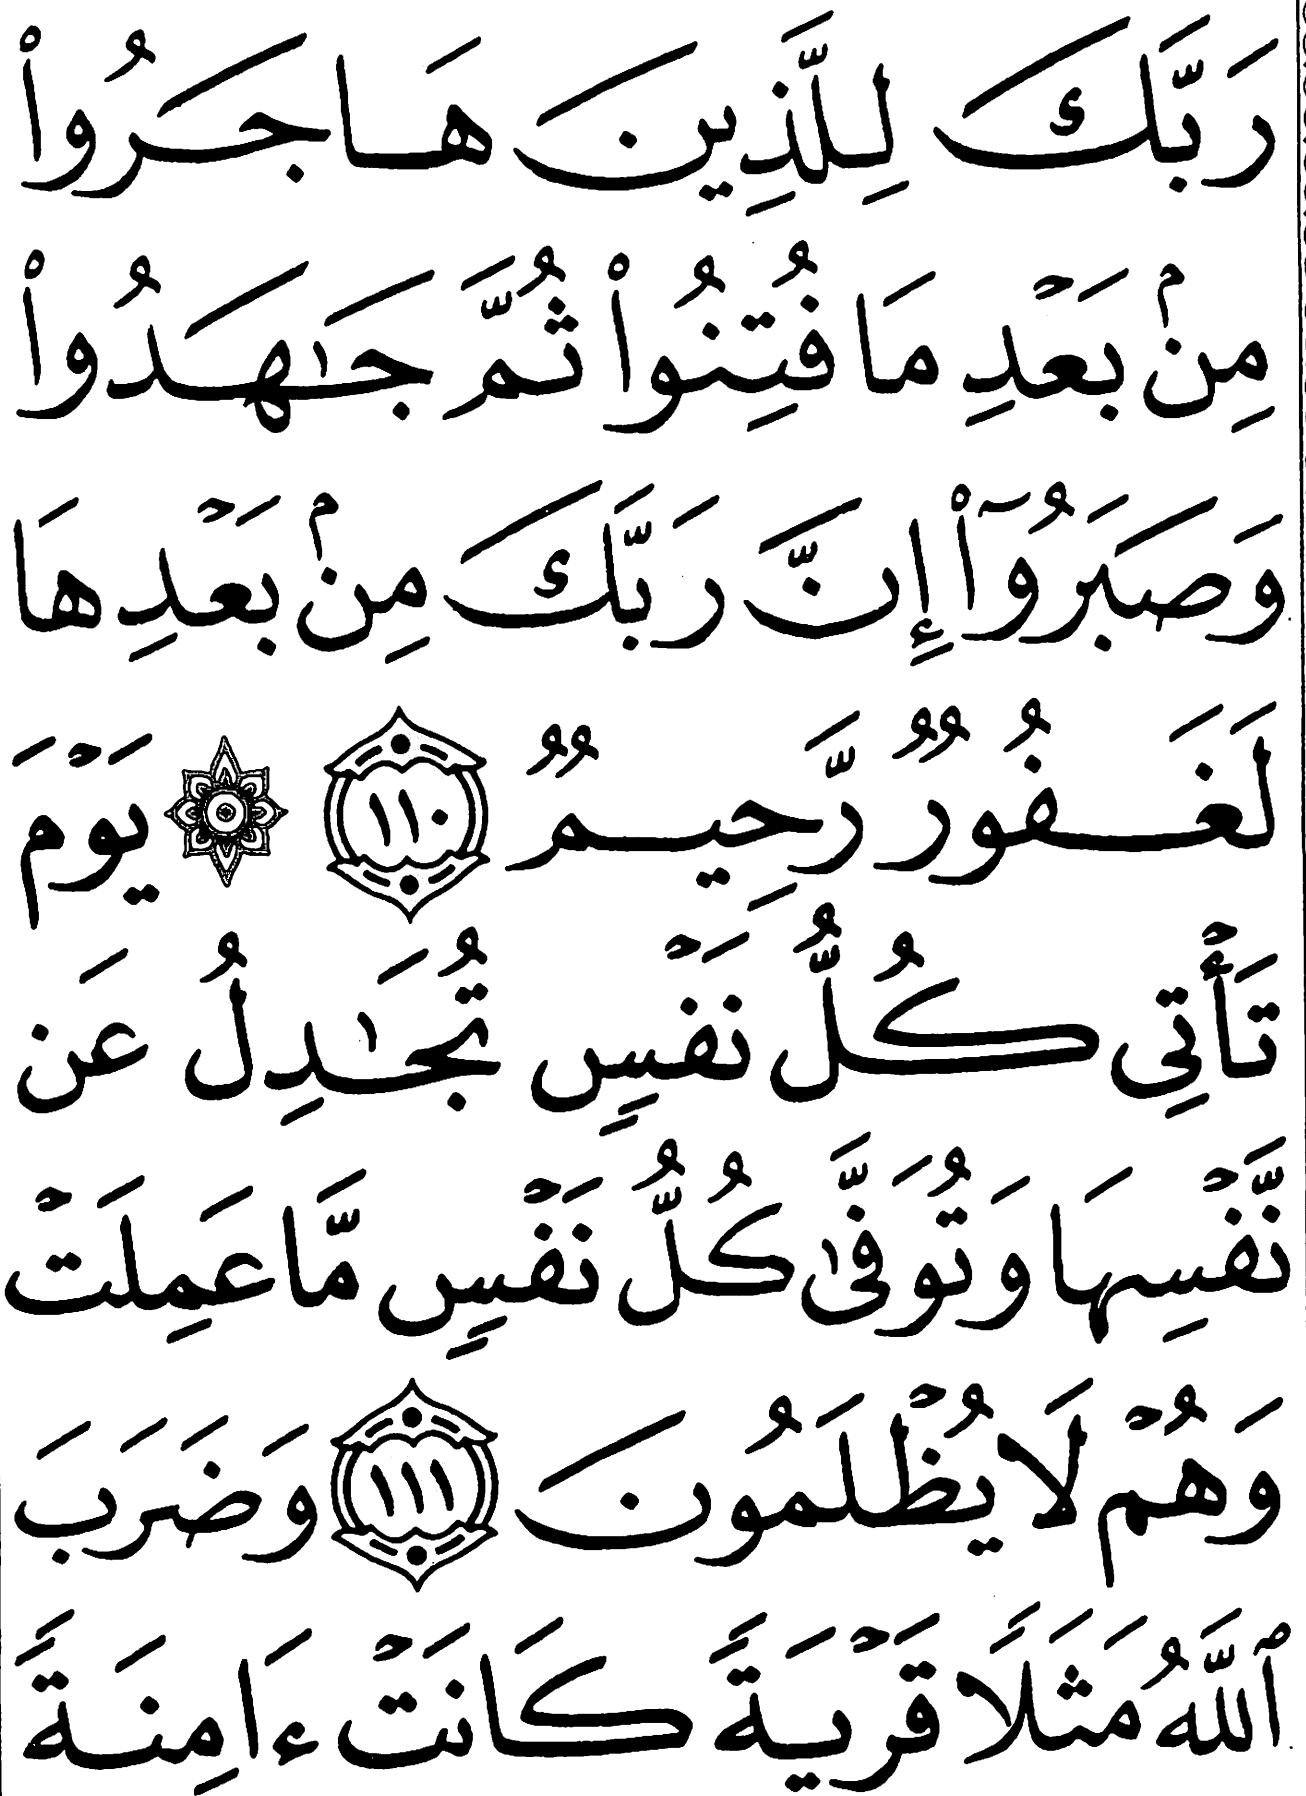 رَبَّكَ لِلَّذِينَ هَاجَرُواْ
مِنۢ بَعۡدِ مَا فُتِنُواْ ثُمَّ جَٰهَدُواْ
وَصَبَرُوٓاْ إِنَّ رَبَّكَ مِنۢ بَعۡدِهَا
لَغَفُورٞ رَّحِيمٞ ١١٠ ۞ يَوۡمَ
تَأۡتِي كُلُّ نَفۡسٖ تُجَٰدِلُ عَن
نَّفۡسِهَا وَتُوَفَّىٰ كُلُّ نَفۡسٖ مَّا عَمِلَتۡ
وَهُمۡ لَا يُظۡلَمُونَ ١١١ وَضَرَبَ
ٱللَّهُ مَثَلٗا قَرۡيَةٗ كَانَتۡ ءَامِنَةٗ